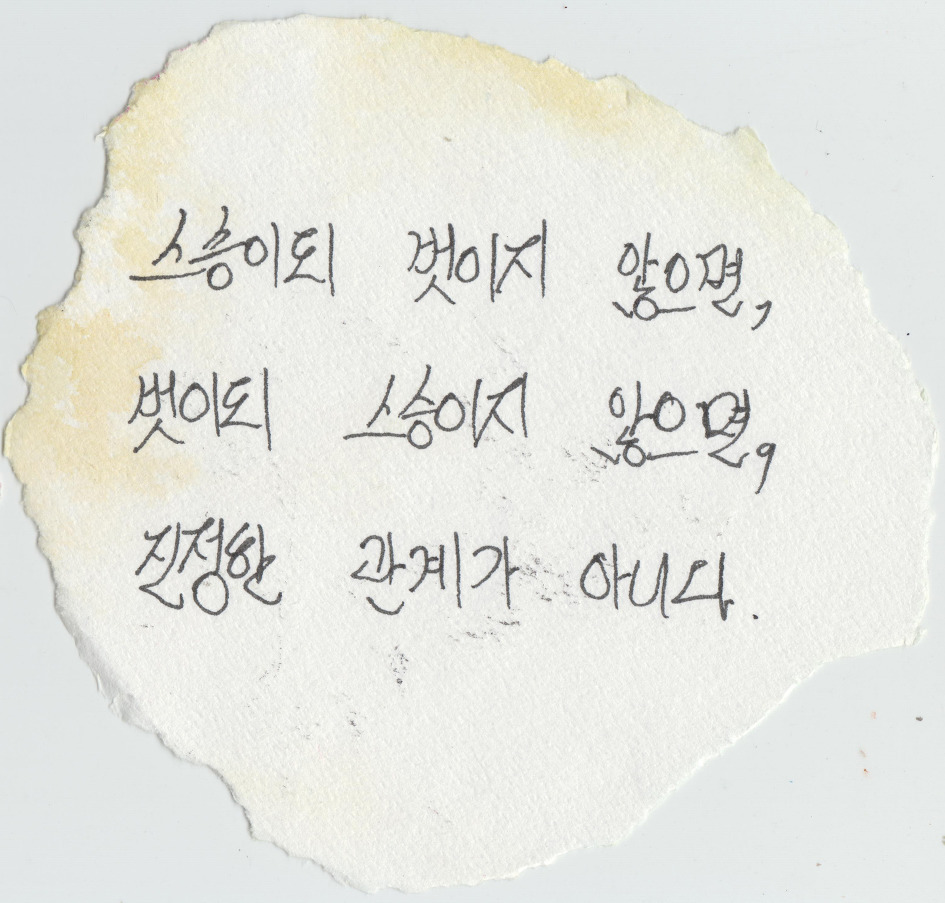 스승이되 벗이지 않으면,
벗이되 스승이지 않으면,
진정한 관계가 아니다.